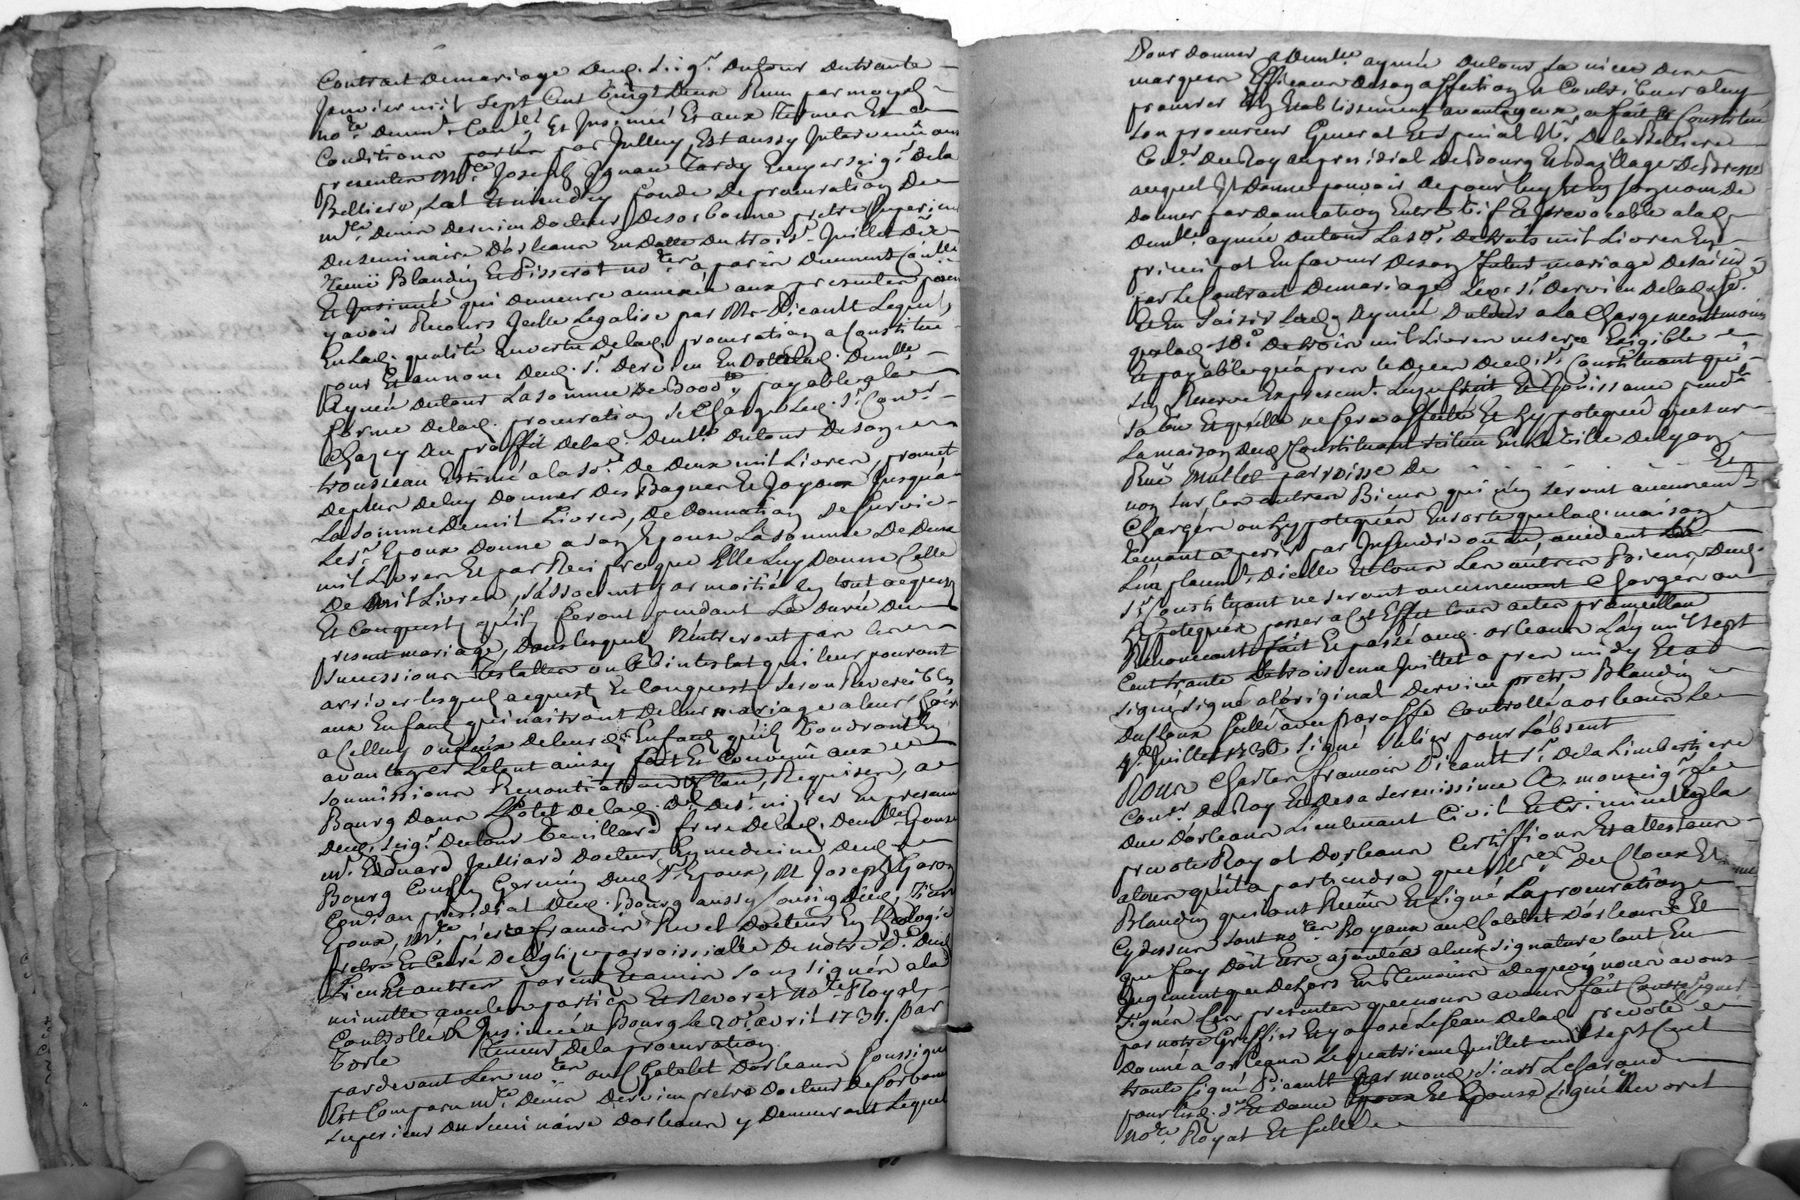 Contrait demariage dud. Seigr. Dutour dutrante
Janvier mil sept Cent vingt deux Reçu par moyd.
nore. deument Conllé Et Insinué Et aux termes Et aux
Conditions portées par Jcelluy, Est aussy Intervenû aux
presentes Mre. Joseph Ignace Tardy Ecuyer seigr. dela
Belliere, Lad Emendey fondé de procuration de
mre. denis dervieu docteur desorbonne pretre superieur
duseminaire dorleans En datte du troisr. Juillet dix
Recüe Blandin Et Pisserot nores. a paris deument Conllée
Et Insinué qui demeure annexée aux presentes pour
y avoir Recours Jcelle legalisé par Mr. Picault Lequel,
Enlad. qualité Envertu delad. procuration a Constitué
pour Et aunom dud. sr. dervieu En dot alad. demlle.
Aymée dutour La somme de 3000 lt payable ala
forme delad. procuration, se Charge led. sr. Conr.
Chazey au proffit delad. demlle. dutour desony
trousseau Estimé ala so. de deux mil Livres, promet
deplus deluy donner des Bagues Et Joyaux Jusqu'a
La somme de mil Livres, de donnation de survie
Le sr. Epoux donne a son Epouse La somme de deux
mil Livres Et par Reciproque Elle Luy donne Celle
de mil Livres, s'associent par moitié En tout acquests
Et Conquests qu'ils feront pendant La durée du
present mariage, dans lesquels n'entreront pas les
successions testatées ou ab intestat qui leur pouront
arriver lesquels acquests Et Conquests seront Reversibles
aux Enfans qui naitront de leur mariage a leurs Choix
a Celluy ou Ceux de leurs ds. Enfans qu'ils voudront
avantager Letout ainsy fait Et Convenû aux
soumissions Renontiations Et Clauses, Requises, a
Bourg dans L'hotel delad. De. dest. nizier En presence
dud. seigr. dutour Vuillard frere delad. demlle. Epouse
mr. Edouard Julliard docteur En medecine dud.
Bourg Cousin Germain dud. sr. Epoux, Mr Joseph Garon
Conr. au presidial dud. Bourg aussy Cousin dud. sieur
Epoux, Mre. pierre francois Ruet docteur En theologie
pretre Et Curé de l'église parroissialle de notre De. dud.
Lieu Et autres parens Et amis soussignés ala
minutte avec les parties Et Revoret nore. Royal,
Contrôllé Et Insinué a Bourg Le 20e. avril 1731. par
Torle
Teneur de la procuration
pardevant Les nores. au Chatelet dorleans soussignés
Est Comparu mre. denis dervieu pretre docteur desorbonne
superieur du seminaire dorleans y demeurant Lequel
Pour donner a demlle. aymée dutour sa niece des
marques Efficaces deson affection Et Contribuer a luy
procurer Un Etablissement avantageux a fait Et Constitué
son procureur General Et special Mr. De la Belliere
Conr. du Roy au presidial de Bourg Et Baillage de Bresse
auquel Jl donne pouvoir de pour luy Et En son nom de
donner par donnation Entre vif Et Jrévocable a lad.
demlle. aymée dutour La so. de trois mil Livres En
principal En faveur deson futur mariage desaisir
par Le Contrait demariage led. sr. dervieu de lad. so.
Et En saisir lad. Aymée Dutour a la Charge neantmoins
quelad. so. de trois mil Livres nesera Exigible
Et payable qu'apres le deceds dud. sr. Constituant qui
sen Reserve Expressemt. L'usufruit Et Jouissance pendt.
sa vie Et quelle ne sera affectée Et hypotequée que sur
La maison dud. Constituant située En la Ville de lyon
Rüe Mullet parroisse de Et
non sur les autres Biens qui n'en seront aucunement
Chargés ou hypotequés Ensorte quelad. maison
venant a perir par Incendie ou au accident
L'emplacemt. d'icelle Et tous Les autres Biens dud.
sr. Constituant ne seront aucunement Chargés ou
hypotequés passer a Cet Effet tous actes promettant
Renonceant fait Et passé aud. orleans L'an mil sept
Cent trante Le trois eme Juillet apres midy Et a
signé signé a l'original Dervieu pretre Blandin
Ducloux scellé avec paraffe Controllé a orleans Le
4e. Juillet 1730. signé Valier pour L'absent
Nous Charles francois Picault sr. de la Limbertiere
Conr. du Roy Et de sa serenissime A. monseigr. Le
Duc dorleans Lieutenant Civil Et Criminel En la
prevoté Royal Dorleans Certiffions Et attestons
a tous qu'il apartiendra que Mres. Ducloux Et
Blandin qui ont Reçûe Et signé La procuration
Cydessus sont nores. Royaux au Chatelet Dorleans Et
que foy doit Etre ajoutée aleurs signature tant En
Jugement que dehors En Temoins dequoy nous avons
signés Ces presentes que nous avons fait Contresigner
par notre Greffier Et y aposé Le sceau de lad. prevoté
donné a orleans Le quatrieme Juillet mil sept Cent
trante signé Picault par mond. sieur Le
pour led. sr. Et dame Epoux Et Epouse signé Revoret
nore. Royal Et scellé